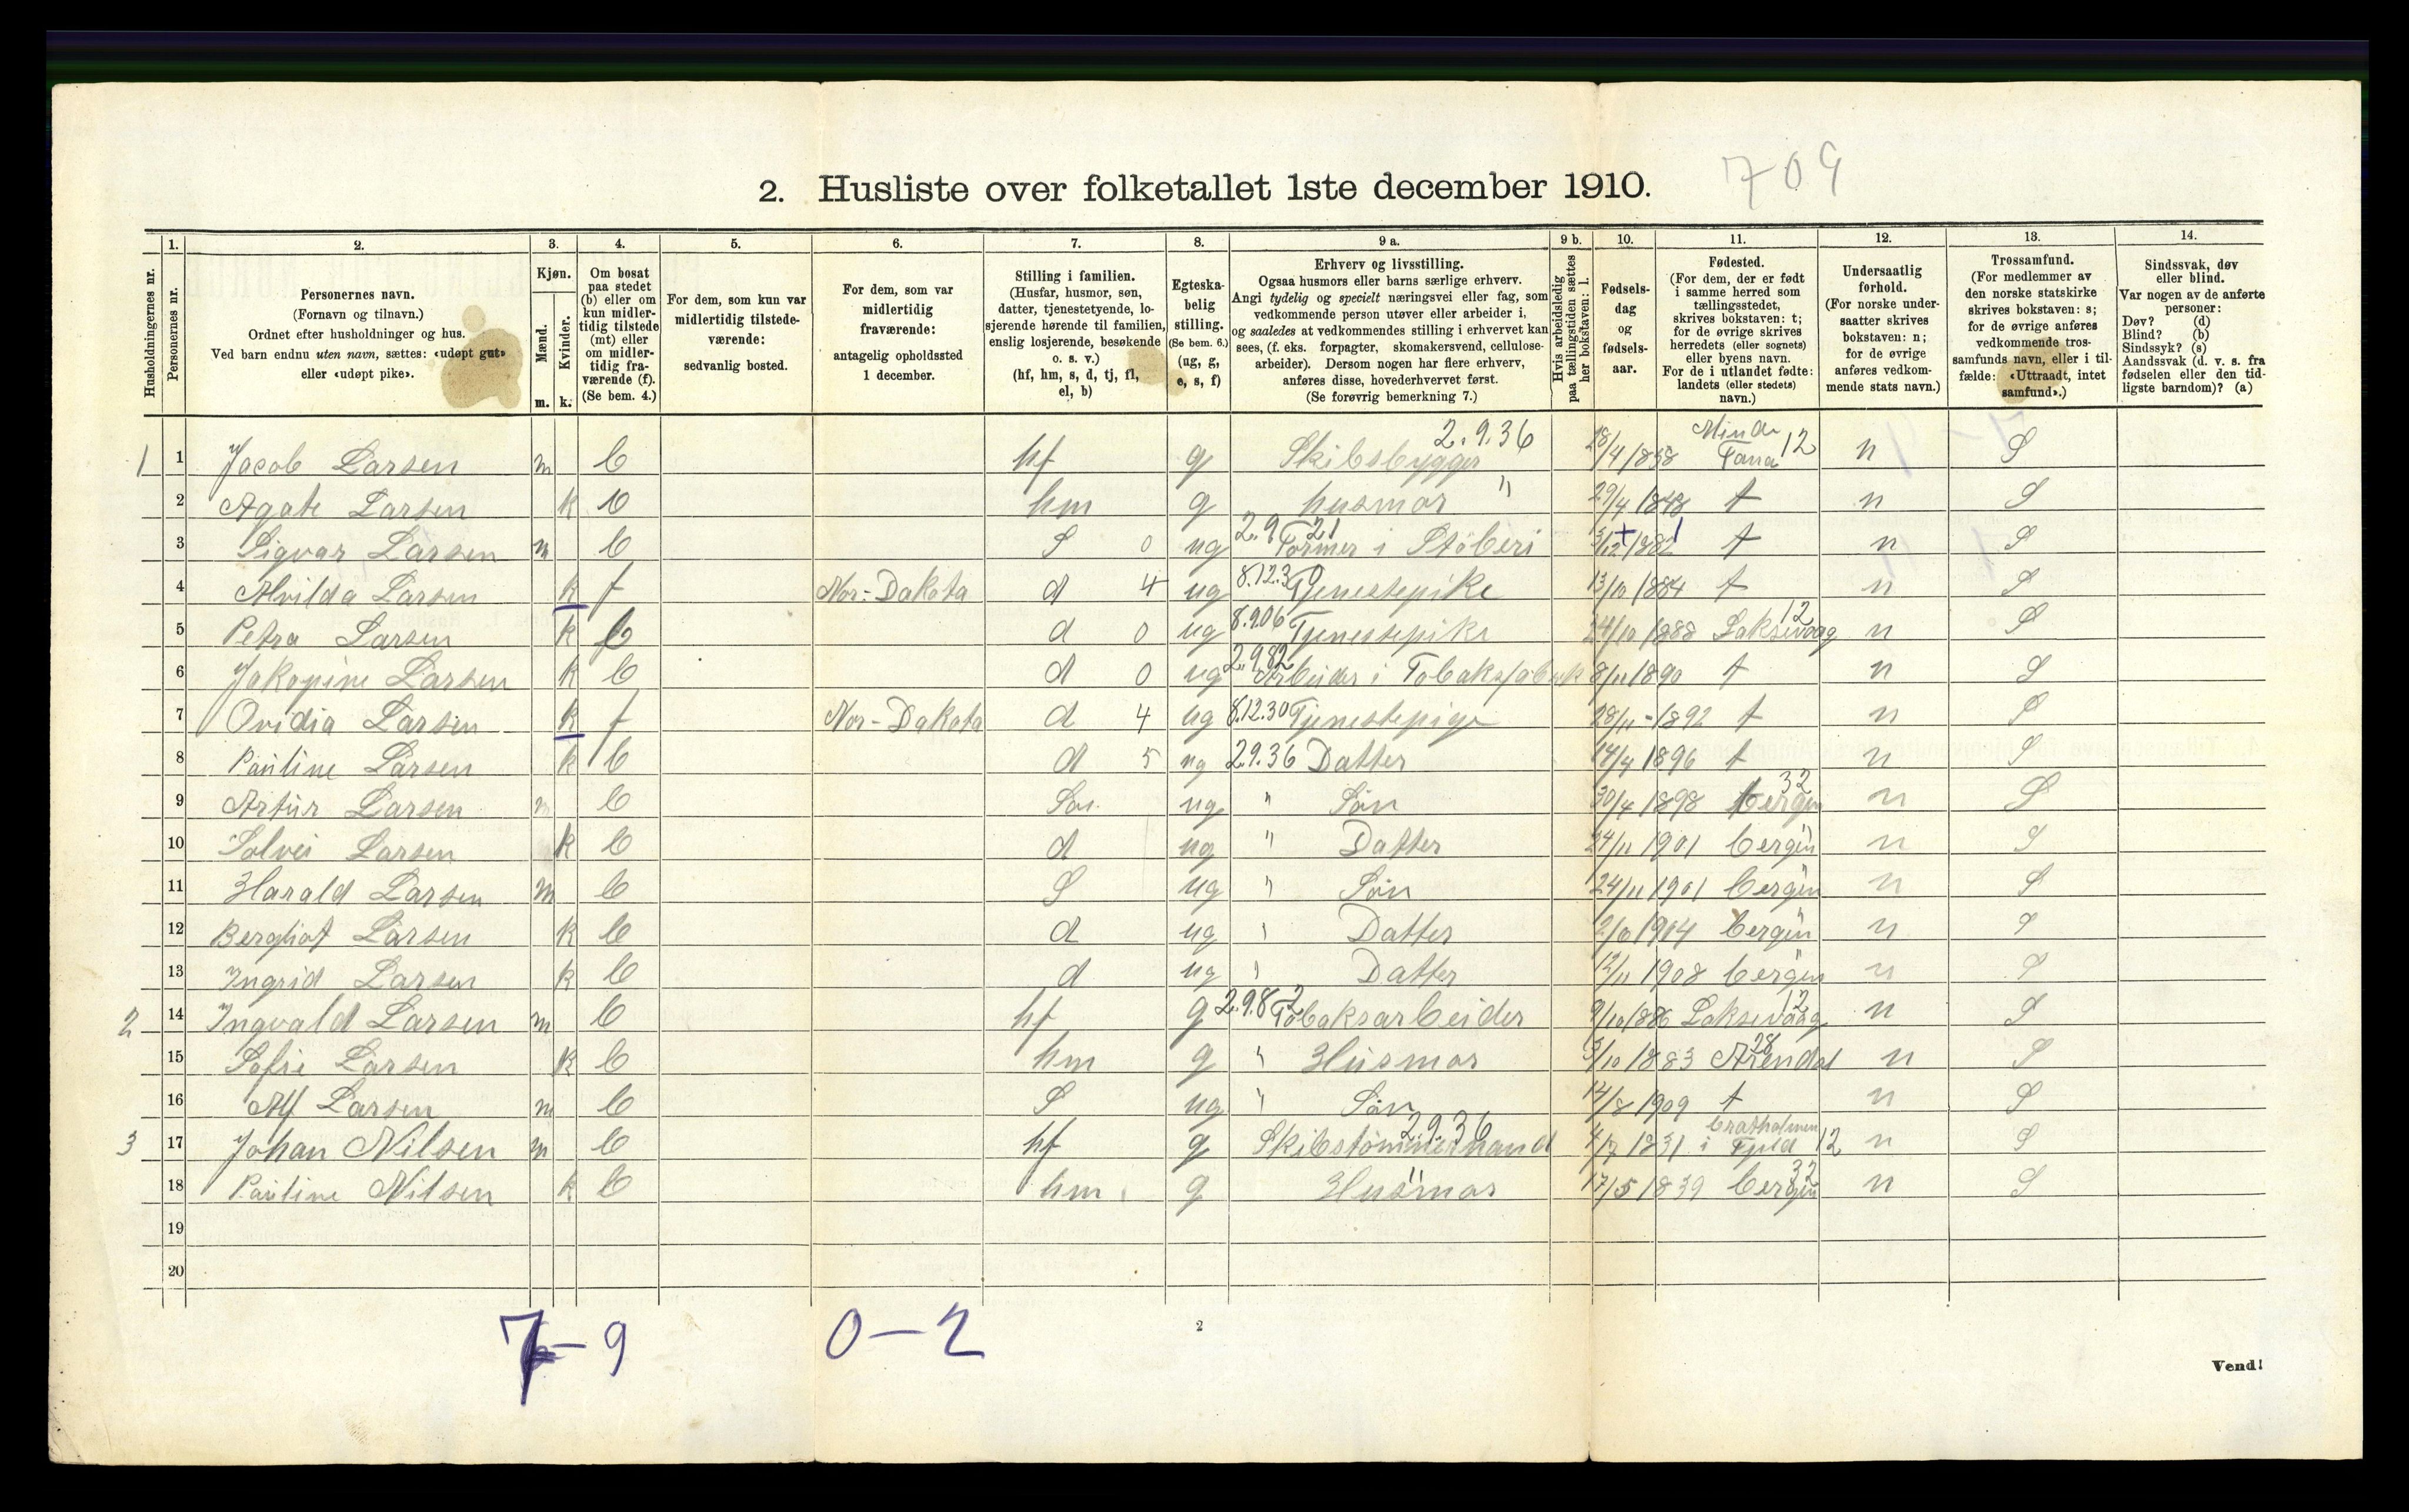 709
2. Husliste over folketallet 1ste december 1910.
Husholdningernes nr.
1. Personernes nr.
2. Personernes navn. (Fornavn og tilnavn.) Ordnet efter husholdninger og hus. Ved barn endnu uten navn, sættes: «udøpt gut» eller «udøpt pike».
3. Kjøn. Mænd. m. Kvinder. k.
4. Om bosat paa stedet (b) eller om kun midlertidig tilstede (mt) eller om midlertidig fraværende (f). (Se bem. 4.)
5. For dem, som kun var midlertidig tilstedeværende: sedvanlig bosted.
6. For dem, som var midlertidig fraværende: antagelig opholdssted 1 december.
7. Stilling i familien. (Husfar, husmor, søn, datter, tjenestetyende, losjerende hørende til familien, enslig losjerende, besøkende o. s. v.) (hf, hm, s, d, tj, fl, el, b)
8. Egteskabelig stilling. (Se bem. 6.) (ug, g, e, s, f)
9 a. Erhverv og livsstilling. Ogsaa husmors eller barns særlige erhverv. Angi tydelig og specielt næringsvei eller fag, som vedkommende person utøver eller arbeider i, og saaledes at vedkommendes stilling i erhvervet kan sees, (f. eks. forpagter, skomakersvend, cellulosearbeider). Dersom nogen har flere erhverv, anføres disse, hovederhvervet først. (Se forøvrig bemerkning 7.)
9 b. Hvis arbeidsledig paa tællingstiden sættes her bokstaven: l.
10. Fødselsdag og fødselsaar.
11. Fødested. (For dem, der er født i samme herred som tællingsstedet, skrives bokstaven: t; for de øvrige skrives herredets (eller sognets) eller byens navn. For de i utlandet fødte: landets (eller stedets) navn.)
12. Undersaatlig forhold. (For norske undersaatter skrives bokstaven: n; for de øvrige anføres vedkommende stats navn.)
13. Trossamfund. (For medlemmer av den norske statskirke skrives bokstaven: s; for de øvrige anføres vedkommende trossamfunds navn, eller i tilfælde: «Uttraadt, intet samfund».)
14. Sindssvak, døv eller blind. Var nogen av de anførte personer: Døv? (d) Blind? (b) Sindssyk? (s) Aandssvak (d. v. s. fra fødselen eller den tidligste barndom)? (a)
1 1 Jacob Larsen m b hf g Skibsbygger 2.9.36 28/4 1838 Minde Fana 12 n S
2 Agate Larsen k b hm g husmor " 29/4 1848 t n S
3 Sigvar Larsen m b S 0 ug 2.9.21 Former i Støberi 3/12 1882 t n S
4 Alvilda Larsen k f Nor-Dakota d 4 ug 8.12.30 Tjenestepike 13/10 1884 t n S
5 Petra Larsen k b d 0 ug 8.906 Tjenestepike 24/10 1888 Laksevaag 12 n S
6 Jakopine Larsen k b d 0 ug 2.9.82 Arbeider i Tobaksfabrik 8/11 1890 t n S
7 Ovidia Larsen k f Nor-Dakota d 4 ug 8.12.30 Tjenestepige 28/11-1892 t n S
8 Pauline Larsen k b d 5 ug 2.9.36 Datter 14/4 1896 t n S
9 Artur Larsen m b Søn ug " Søn 30/4 1898 bergen 32 n S
10 Solvei Larsen k b d ug " Datter 24/11 1901 bergen " n S
11 Harald Larsen m b S ug " Søn 24/11 1901 bergen " n S
12 Bergliot Larsen k b d ug " Datter 2/10 1904 bergen " n S
13 Ingrid Larsen k b d ug " Datter 12/11 1908 bergen " n S
2 14 Ingvald Larsen m b hf g 2.9.82 Tobaksarbeider 9/10 1886 Laksevaag 12 n S
15 Sofie Larsen k b hm g " Husmor 3/10 1883 Arendal 28 n S
16 Alf Larsen m b S ug " Søn 14/8 1909 t n S
3 17 Johan Nilsen m b hf g Skibstømmermand 2.9.36 4/7 1831 bratholmen i Fjeld 12 n S
18 Pauline Nilsen k b hm g Husmor " 17/5 1839 bergen 32 n S
19
20
7-9 0-2
2
Vend!